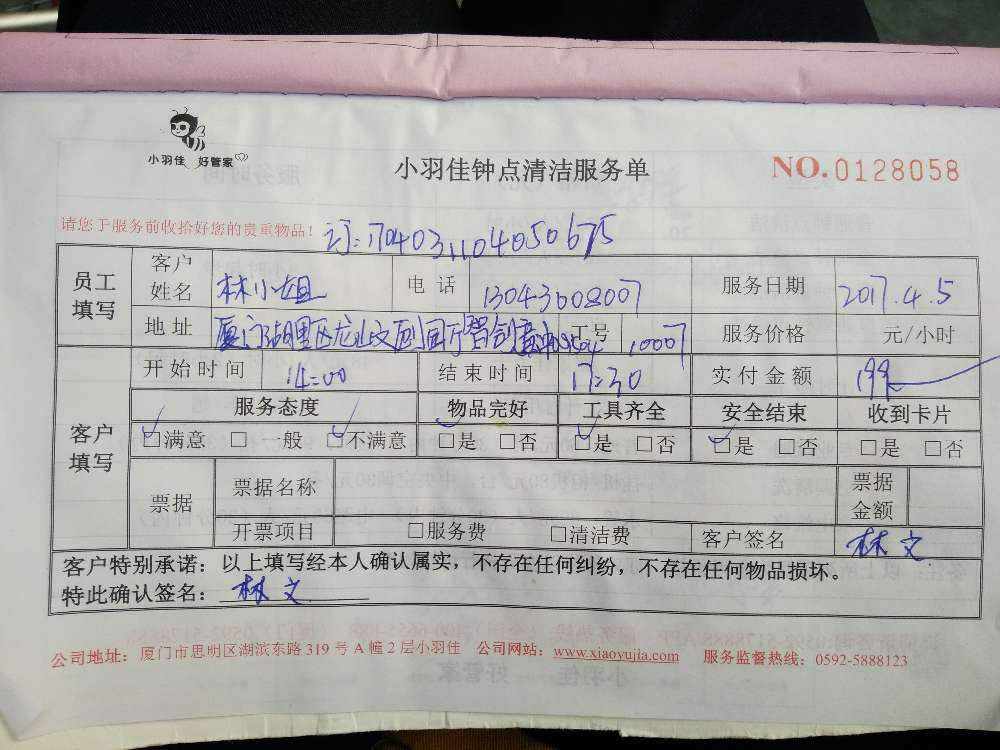 小羽佳 好管家
小羽佳钟点清洁服务单
NO.0128058
请您于服务前收拾好您的贵重物品!
订:1704031104050675
员工填写 客户姓名 林小姐 电话 13043008007 服务日期 2017.4.5
地址 厦门湖里区龙山文创园 工号 10007 服务价格 元/小时
客户填写 开始时间 14:00 结束时间 17:30 实付金额 199
服务态度 物品完好 工具齐全 安全结束 收到卡片
☑满意 □一般 ☑不满意 ☑是 □否 ☑是 □否 ☑是 □否 □是 □否
票据 票据名称 票据金额
开票项目 □服务费 □清洁费 客户签名 林文
客户特别承诺:以上填写经本人确认属实,不存在任何纠纷,不存在任何物品损坏。
特此确认签名: 林文
公司地址:厦门市思明区湖滨东路 319 号 A 幢 2 层小羽佳 公司网站:www.xiaoyujia.com 服务监督热线:0592-5888123